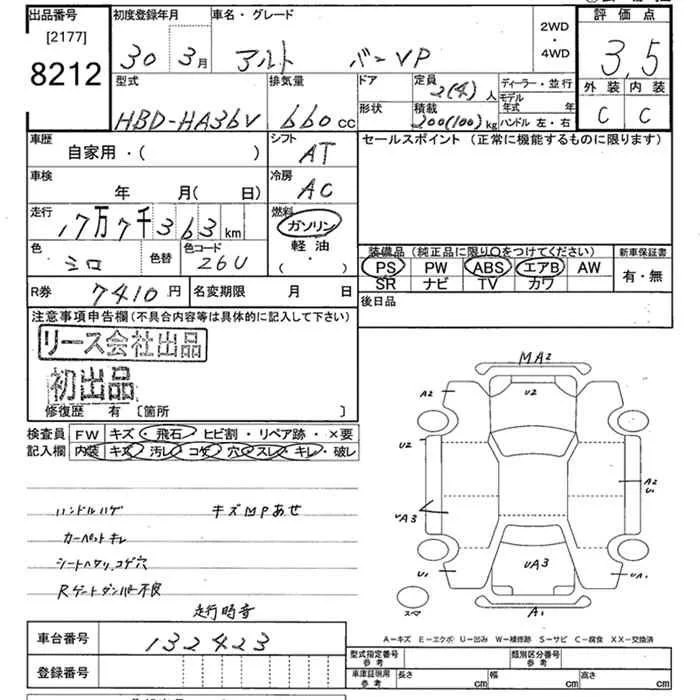 出品番号 初度登録年月 車名・グレード 2WD・4WD 評価点
[2177]
8212
30 3月 アルト バーVP 3.5
型式 排気量 ドア 定員 2(4)人 ディーラー・並行 外装 内装
モデル年式 年
HBD-HA36V 660cc 形状 積載 200(100)kg ハンドル 左・右 C C
車歴 シフト セールスポイント (正常に機能するものに限ります)
自家用・( ) AT
車検 冷房
年 月( 日) AC
走行 燃料
17万7千363km ガソリン
軽油
・( )
色 色替 色コード
シロ 26U
装備品(純正品に限り○をつけてください) 新車保証書
PS PW ABS エアB AW 有・無
SR ナビ TV カワ
R券 7410円 名変期限 月 日 後日品
注意事項申告欄(不具合内容等は具体的に記入して下さい)
リース会社出品
初出品
修復歴 有 [箇所 ]
検査員 FW キズ・飛石・ヒビ割・リペア跡・×要
記入欄 内装 キズ・汚レ・コゲ・穴・スレ・キレ・破レ
ハンドルハゲ キズMPあせ
カーペットキレ
シートヘタリ、コゲ穴
Rゲートダンパー不良
走行時音
MA2
A2 U2
U2
A2
U1
UA3
UA3
U1 UA1
スマ A1
A-キズ E-エクボ U-凹み W-補修跡 S-サビ C-腐食 XX-交換済
車台番号 132423
型式指定番号 参考 類別区分番号 参考
登録番号 車庫証明用 参考 長さ cm 幅 cm 高さ cm